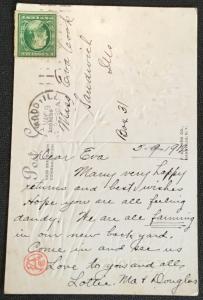 Miss Eva Cook
Sandwich
Ills
Box 31
Post Ca
5-9-19
Dear Eva
Many very happy
returns and best wishes
Hope you are all feeling
dandy. We are all farming
in our new back yard.
Come in and see us
Love to you and all,
Lottie, Ma & Douglas